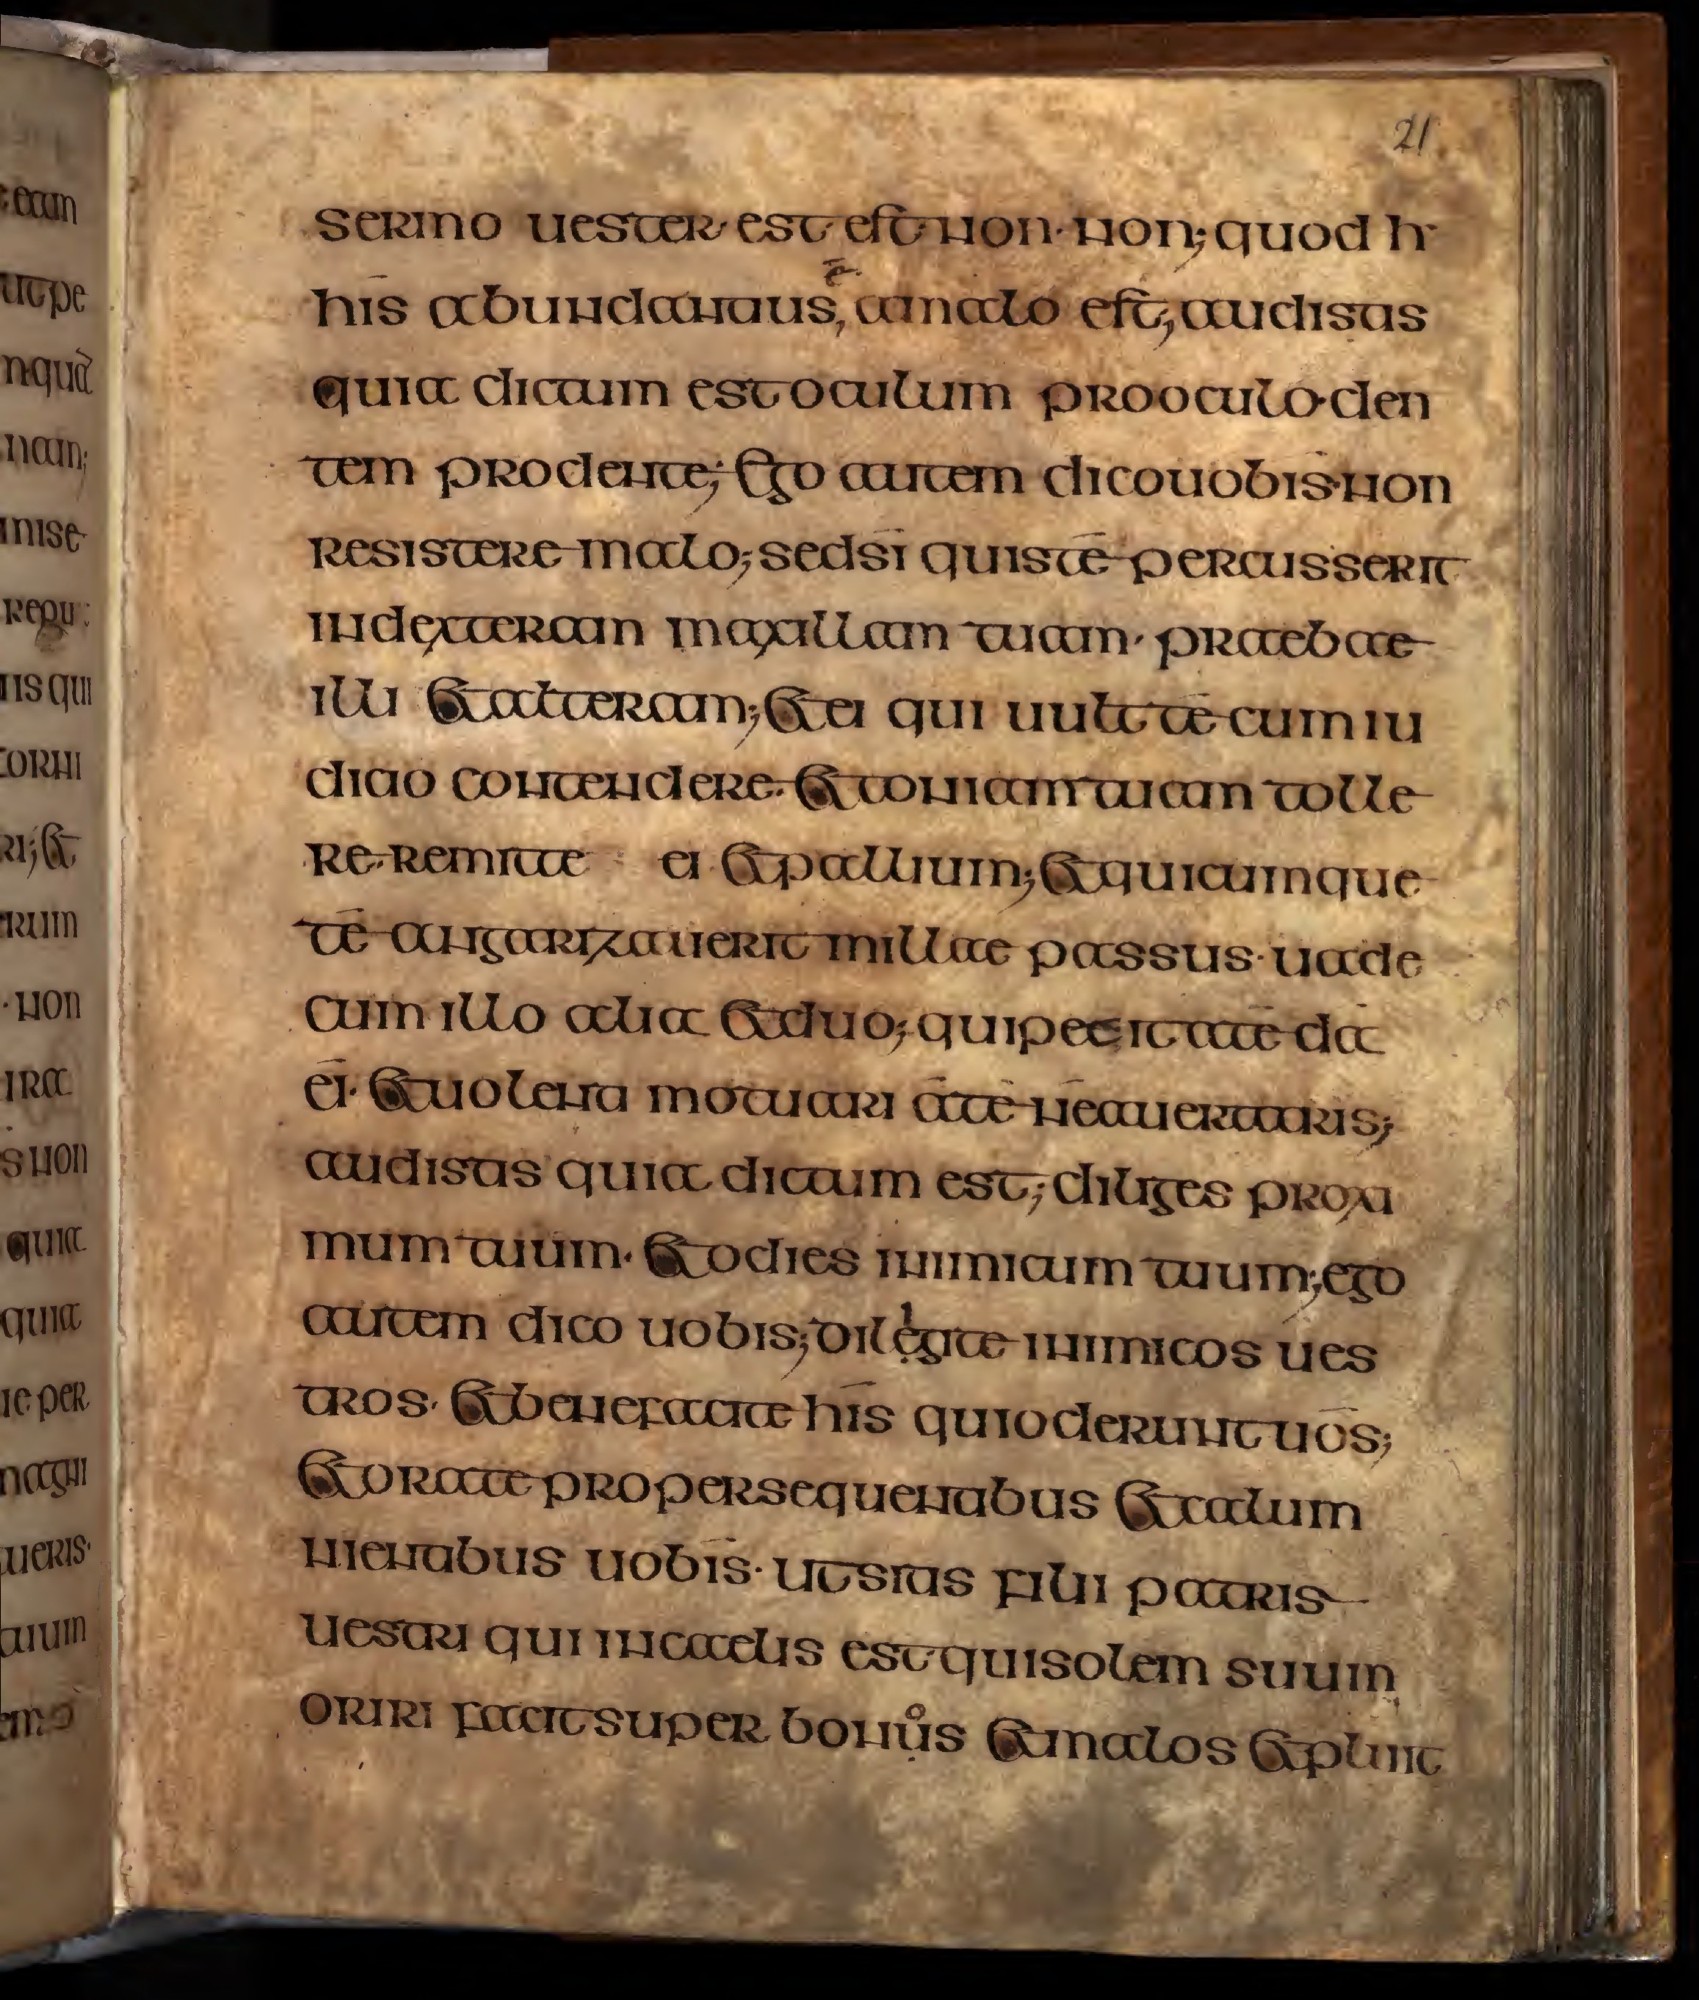 21
sermo uester· est est non· non; quod h·
his abundantius, ē· amalo est, audistis
quia dictum est oculum prooculo· den
tem prodente; Ego autem dicouobis· non
resistere malo; sedsi quiste percusserit
indexteram maxillam tuam· praebae
illi & alteram; & ei qui uult te cum iu
dicio contendere· & tonicam tuam tolle
re· remitte ei & pallium; & quicumque
te angarizauerit millae passus· uade
cum illo alia & duo; quipetit ate da
ei· & uolenti motuari ate neauertaris;
audistis quia dictum est; diliges proxi
mum tuum· & odies inimicum tuum; ego
autem dico uobis; diligite inimicos ues
tros· & benefacite his quioderunt uos;
& orate propersequentibus & calum
nientibus uobis· utsitis filii patris
uestri qui incaelis est quisolem suum
oriri facit super bonos & malos & pluit
team
nam;
mise
· non
ira
s non
quia
quia
ueris·